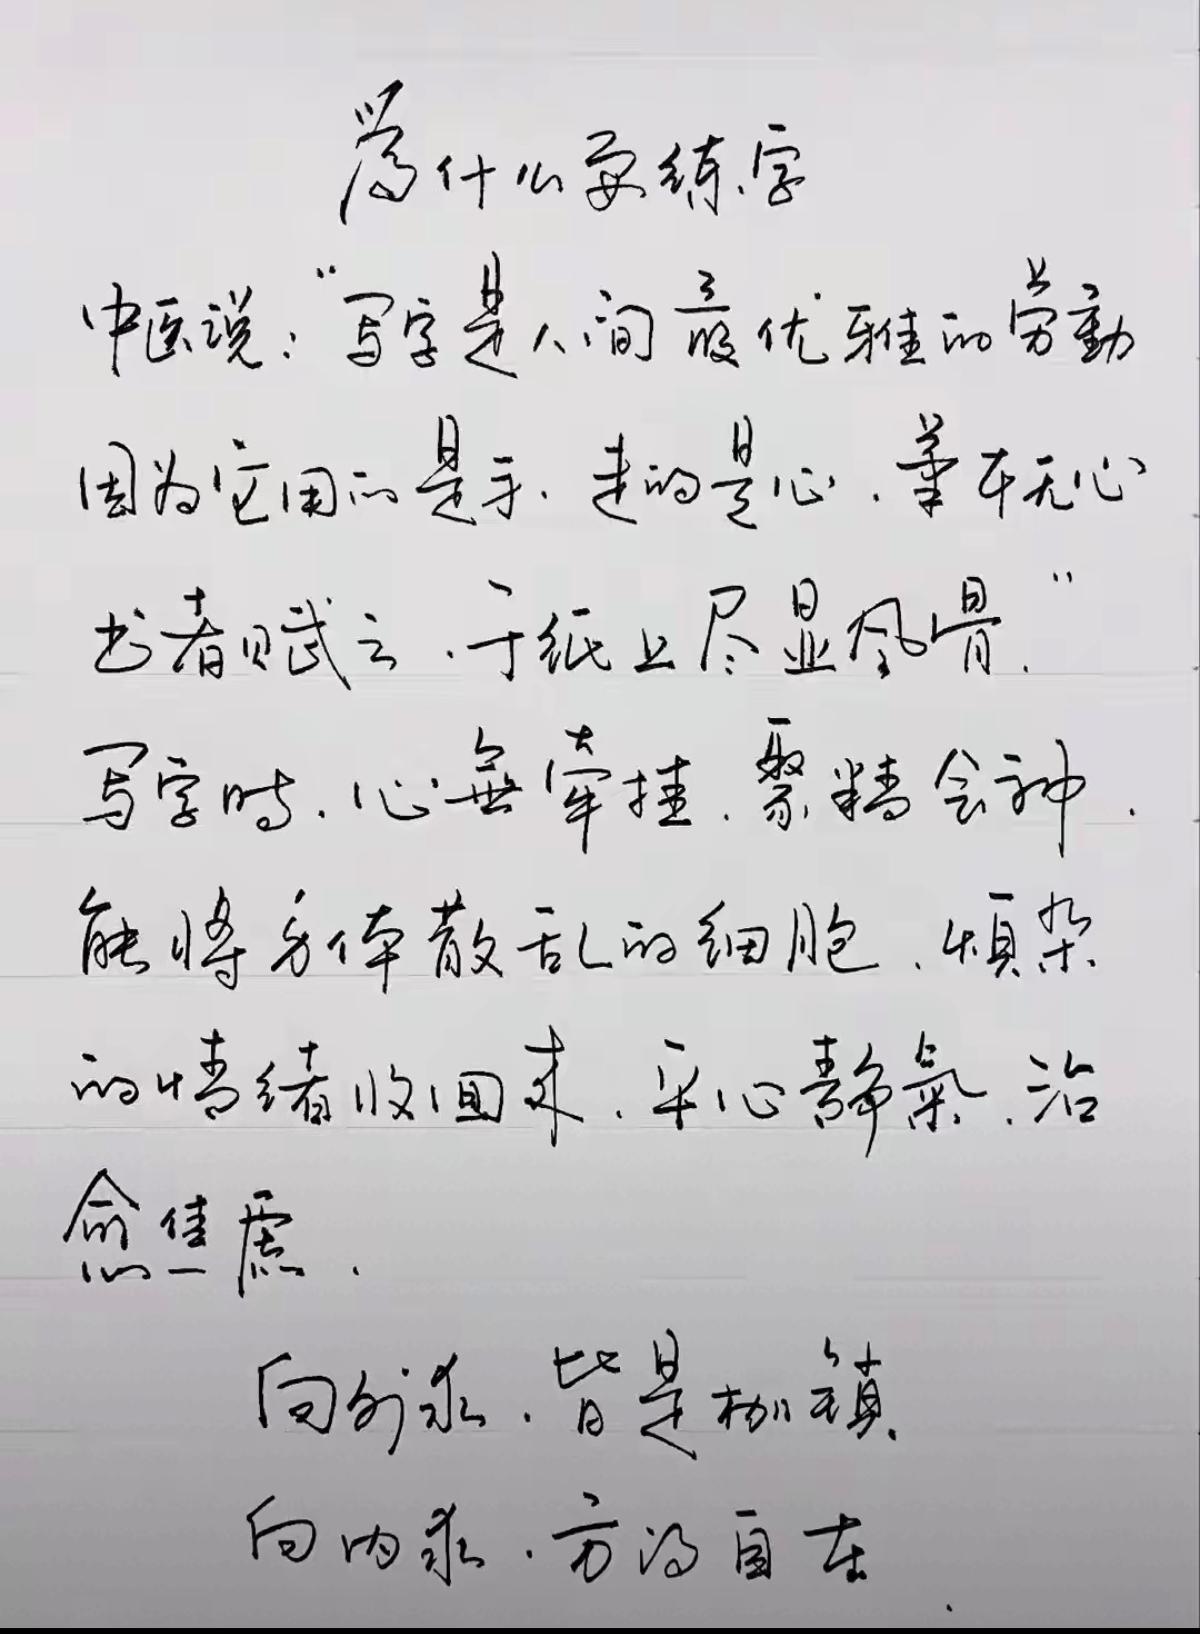 為什么要练字
中医说：“写字是人间最优雅的劳動
因为它用的是手.走的是心.笔本无心
书者赋之.于纸上尽显风骨.”
写字时.心無牵挂.聚精会神.
能将身体散乱的细胞.烦杂
的情绪收回来.平心静氣.治
愈焦虑.
向外求.皆是枷锁.
向内求.方得自在.